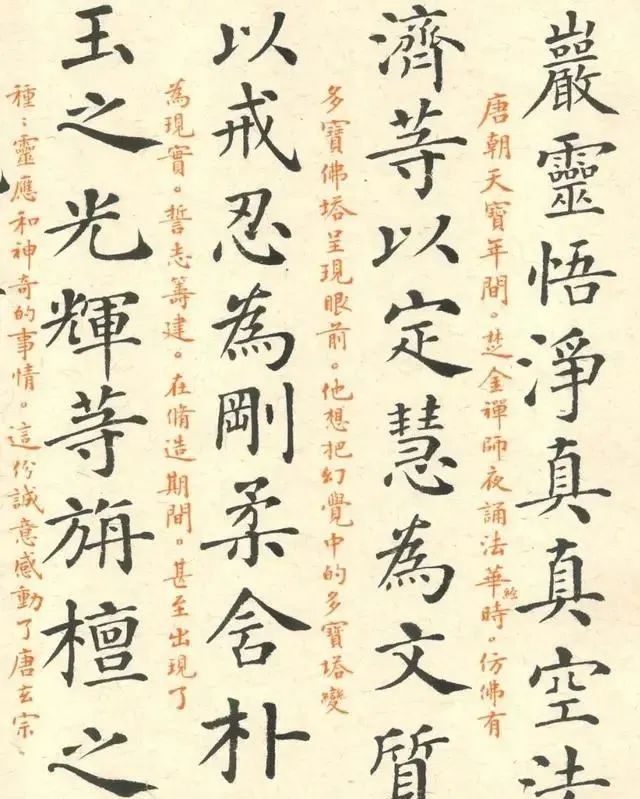 巖靈悟淨真真空法
唐朝天寶年間。楚金禪師夜誦法華經時。仿佛有
濟等以定慧為文質
多寶佛塔呈現眼前。他想把幻覺中的多寶塔變
以戒忍為剛柔含朴
為現實。誓志籌建。在脩造期間。甚至出現了
玉之光輝等旃檀之
種〻靈應和神奇的事情。這份誠意感動了唐玄宗